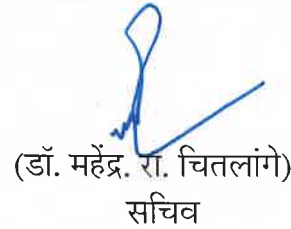 (डॉ. महेंद्र. रा. चितलांगे)
सचिव